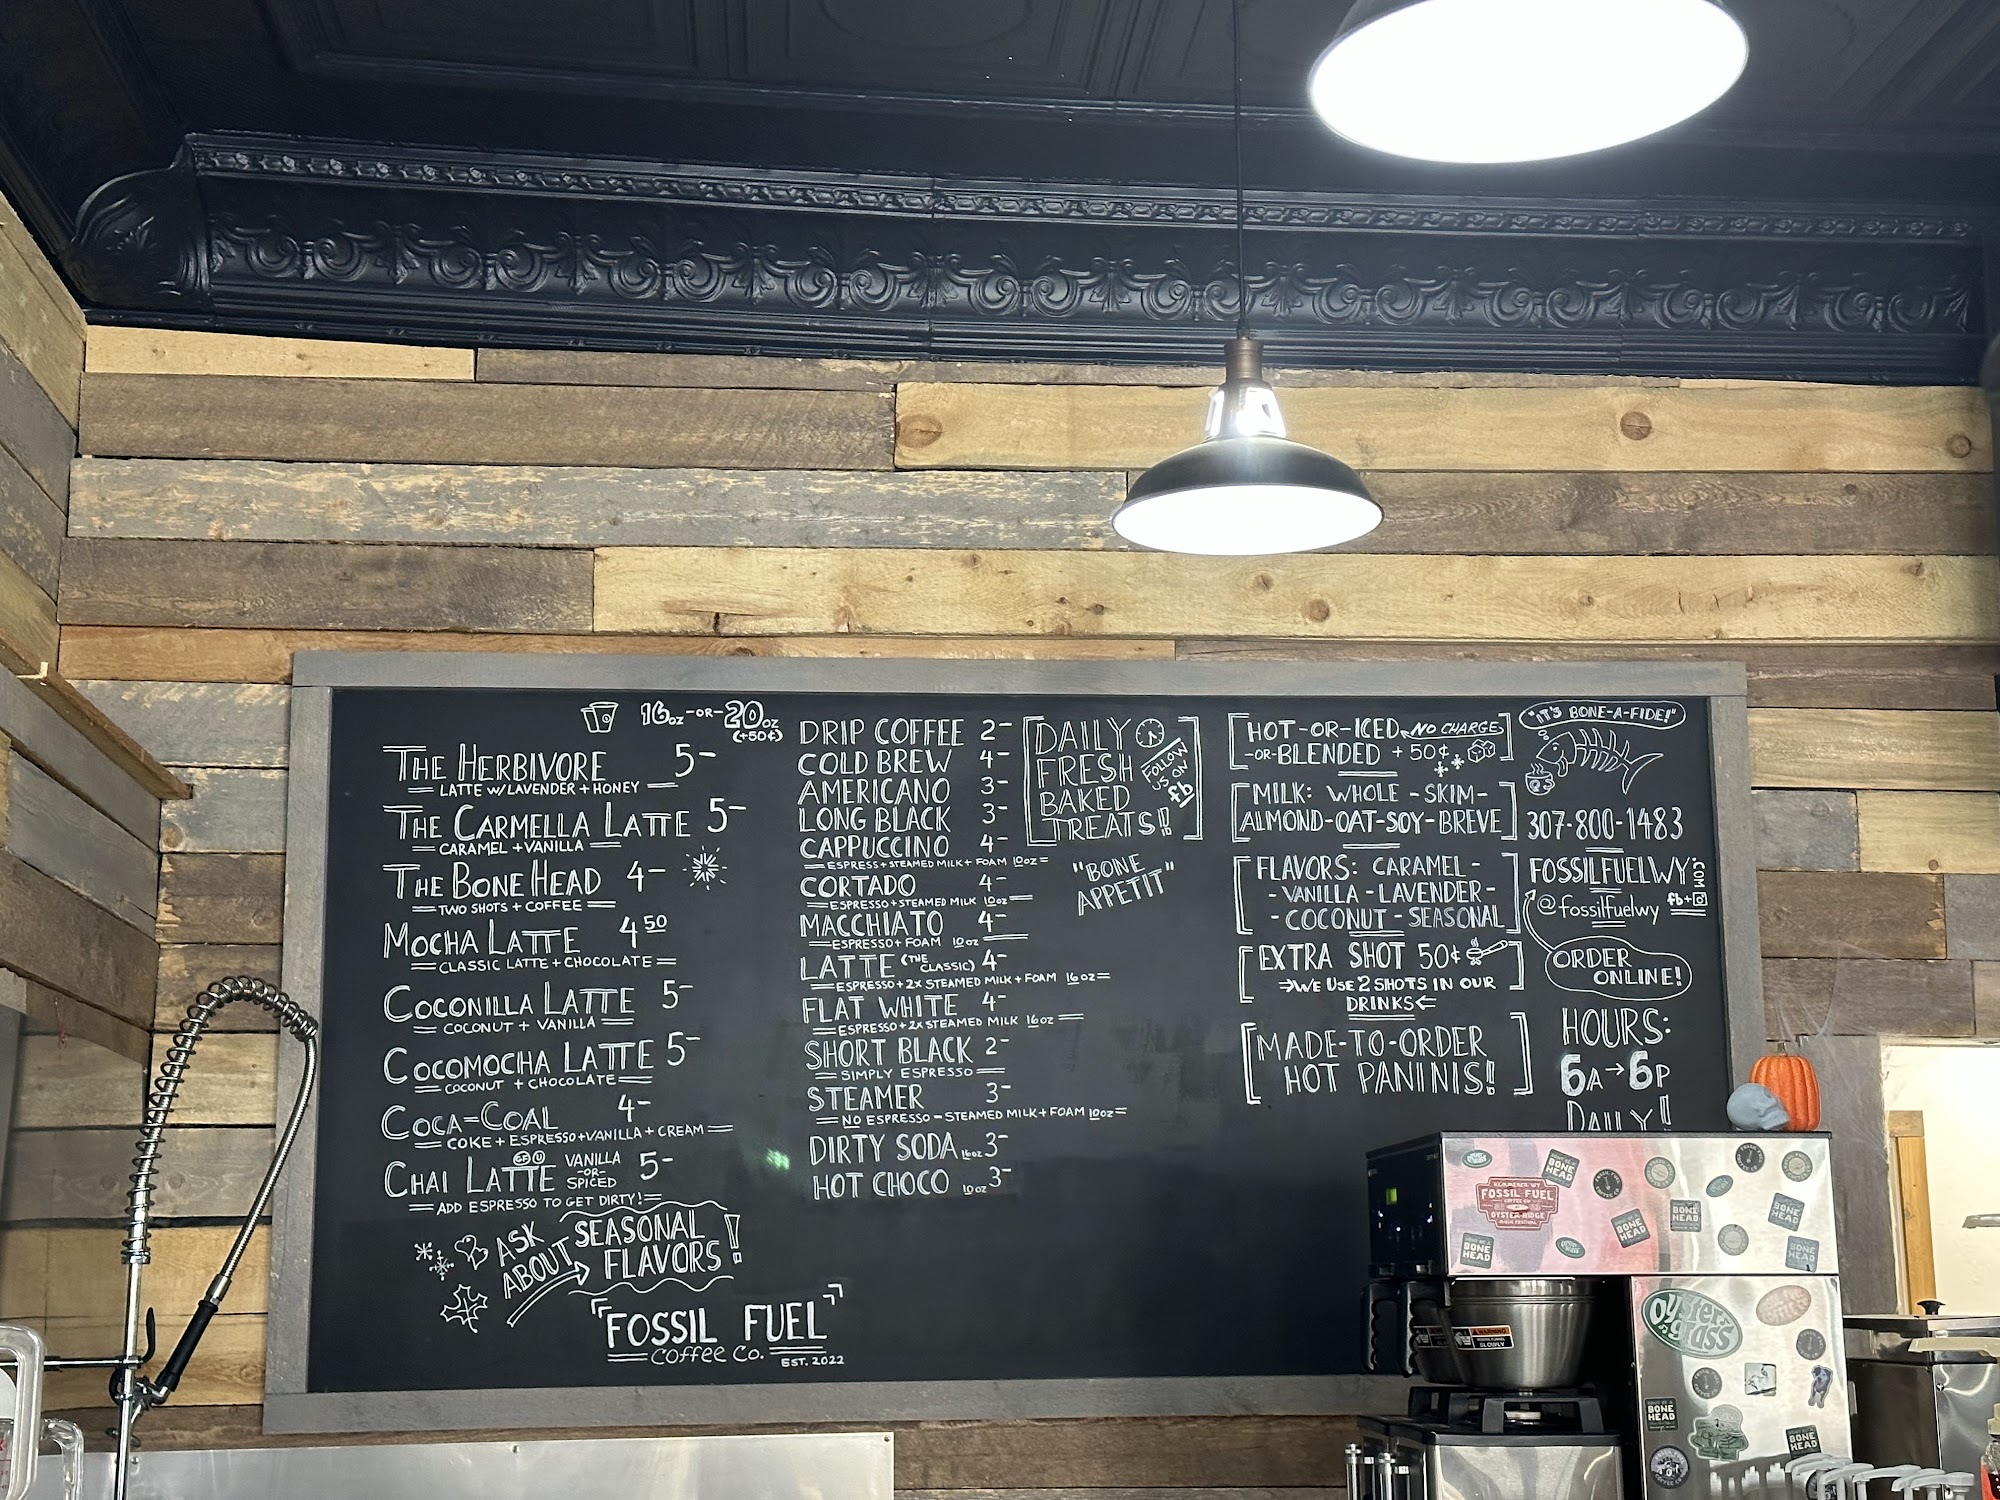 16oz -OR- 20oz
(+50¢)
THE HERBIVORE 5-
LATTE W/LAVENDER + HONEY
THE CARMELLA LATTE 5-
CARAMEL + VANILLA
THE BONEHEAD 4-
TWO SHOTS + COFFEE
MOCHA LATTE 4 50
CLASSIC LATTE + CHOCOLATE
COCONILLA LATTE 5-
COCONUT + VANILLA
COCOMOCHA LATTE 5-
COCONUT + CHOCOLATE
COCA=COAL 4-
COKE + ESPRESSO + VANILLA + CREAM
CHAI LATTE VANILLA -OR- SPICED 5-
ADD ESPRESSO TO GET DIRTY!
ASK ABOUT
SEASONAL
FLAVORS!
FOSSIL FUEL
COFFEE CO. EST. 2022
DRIP COFFEE 2-
COLD BREW 4-
AMERICANO 3-
LONG BLACK 3-
CAPPUCCINO 4-
ESPRESS + STEAMED MILK + FOAM 10oz
CORTADO 4-
ESPRESSO + STEAMED MILK 10oz
MACCHIATO 4-
ESPRESSO + FOAM 10oz
LATTE (THE CLASSIC) 4-
ESPRESSO + 2x STEAMED MILK + FOAM 16oz
FLAT WHITE 4-
ESPRESSO + 2x STEAMED MILK 16oz
SHORT BLACK 2-
SIMPLY ESPRESSO
STEAMER 3-
NO ESPRESSO - STEAMED MILK + FOAM 10oz
DIRTY SODA 16oz 3-
HOT CHOCO 10oz 3-
DAILY
FRESH
BAKED
TREATS!
FOLLOW
US ON
fb
"BONE
APPETIT"
HOT-OR-ICED NO CHARGE
-OR-BLENDED +50¢
MILK: WHOLE - SKIM -
ALMOND-OAT-SOY-BREVE
FLAVORS: CARAMEL -
- VANILLA - LAVENDER -
- COCONUT - SEASONAL
EXTRA SHOT 50¢
WE USE 2 SHOTS IN OUR
DRINKS
MADE-TO-ORDER
HOT PANINIS!
"IT'S BONE-A-FIDE!"
307-800-1483
FOSSILFUELWY.COM
@fossilfuelwy fb+
ORDER
ONLINE!
HOURS:
6A→6P
DAILY!
KEMMERER WY
FOSSIL FUEL
COFFEE CO
OYSTER RIDGE
MUSIC FESTIVAL
BONE
HEAD
BONE
HEAD
BONE
HEAD
BONE
HEAD
BONE
HEAD
BONE
HEAD
WARNING
Oyster
grass
BONE
HEAD
BONE
HEAD